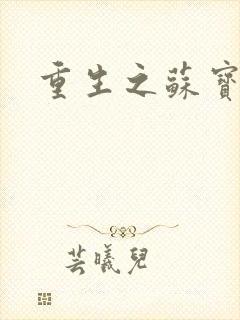 重生之蘇寶
芸曦兒